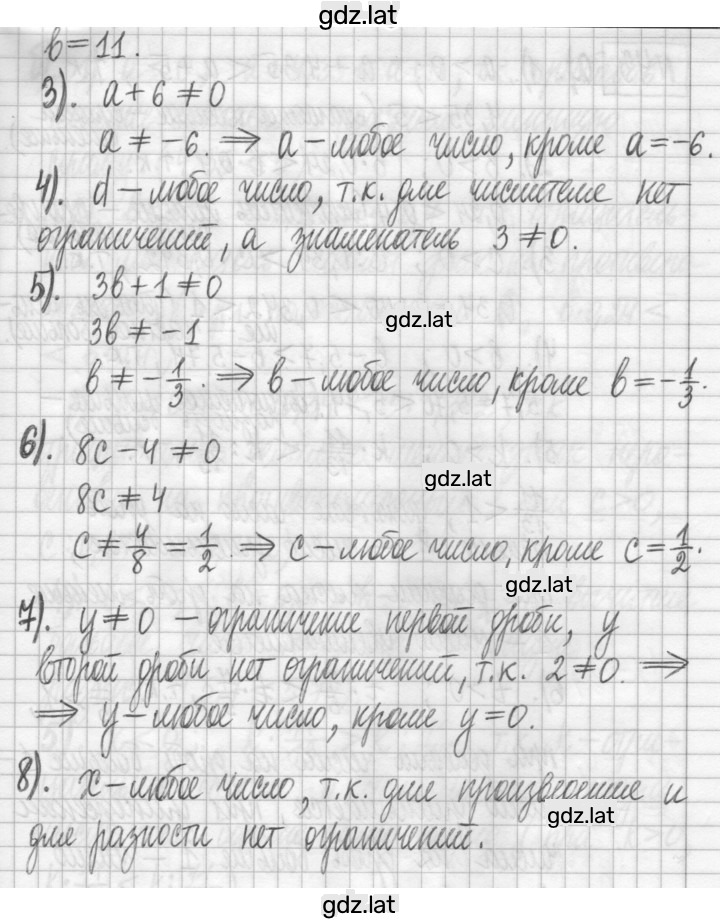 gdz.lat
b=11.
3). a+6≠0
a≠-6. ⇒ a – любое число, кроме a=-6.
4). d – любое число, т.к. для числителя нет
ограничений, а знаменатель 3≠0.
5). 3b+1≠0
3b≠-1
gdz.lat
b≠-1/3. ⇒ b – любое число, кроме b=-1/3.
6). 8c-4≠0
8c≠4
gdz.lat
c≠4/8=1/2. ⇒ c – любое число, кроме c=1/2.
gdz.lat
7). y≠0 – ограничение первой дроби, у
второй дроби нет ограничений, т.к. 2≠0. ⇒
⇒ y – любое число, кроме y=0.
8). x – любое число, т.к. для произведения и
gdz.lat
для разности нет ограничений.
gdz.lat